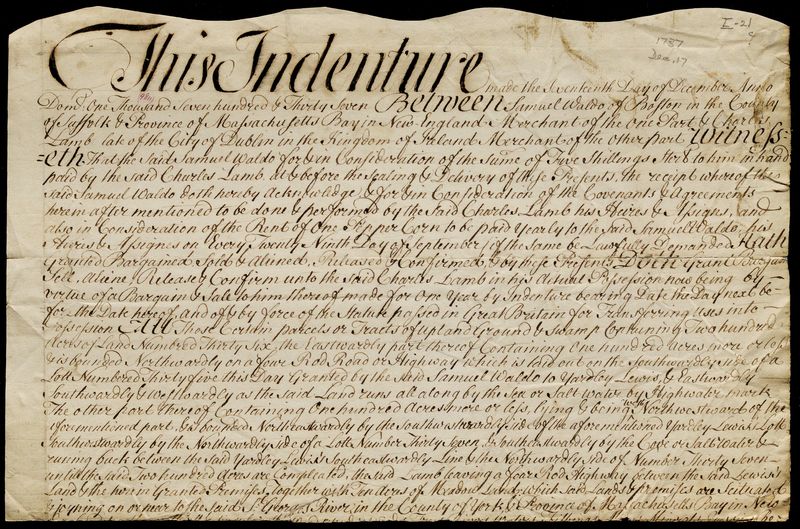 I-21
1737
Dec. 17
This Indenture made the Seventeenth Day of December Anno
Dom. One Thousand Seven hundred & Thirty Seven Between Samuel Waldo of Boston in the County
of Suffolk & Province of Massachusetts Bay in New England Merchant of the One Part & Charles
Lamb late of the City of Dublin in the Kingdom of Ireland Merchant of the other part Witness=
=eth That the Said Samuel Waldo for & in Consideration of the Sume of Five Shillings to him in hand
paid by the said Charles Lamb at & before the Sealing & Delivery of these Presents, the receipt whereof the
said Samuel Waldo doth hereby acknowledge & for & in Consideration of the Covenants & Agreements
herein after mentioned to be done & performed by the Said Charles Lamb his Heires & Assignes, and
also in Consideration of the Rent of One Pepper Corn to be paid Yearly to the Said Samuel Waldo, his
Heires & Assignes on Every Twenty Ninth Day of September (if the Same be Lawfully Demanded) Hath
Granted Bargained Sold & Aliened, Released & Confirmed, & by these Presents Doth Grant Bargain
Sell, Aliene, Release & Confirm unto the Said Charles Lamb in his Actual Possession now being by
virtue of a Bargain & Sale to him thereof made for One Year by Indenture bearing Date the Day next be=
=fore the Date hereof, and of & by force of the Statute passed in Great Britain for Transferring Uses into
Possession All Those Certain parcels or Tracts of upland Ground & Swamp Containing Two hundred
Acres of Land Numbred Thirty Six, the Eastwardly part thereof Containing One hundred Acres more or less
& is bounded Northwardly on a four Rod Road or Highway which is laid out on the Southwardly Side of a
Lott Numbered Thirty five this Day Granted by the Said Samuel Waldo to Yardley Lewis, & Eastwardly
Southwardly & Westwardly as the said Land runs all along by the Sea or Salt Water by Highwater mark
The other part thereof Containing One hundred Acres more or less, lying & being Northwestward of the
aforementioned part, & is bounded Northeastwardly by the Southwestwardly side of the aforementioned Yardley Lewis's Lott
Southwestwardly by the Northwardly side of a Lott Number Thirty Seven, & Southeastwardly by the Cove or Salt Water &
runing back between the said Yardley Lewis's Southeastwardly Line & the Northwardly side of Number Thirty Seven
untill the Said Two hundred Acres are Compleated, the said Lamb leaving a four Rod Highway between the said Lewis's
Land & the herein Granted Premises, together with Ten Acres of Meadow Land, which Said Lands & premisses are Scituate
lying on or near to the Said St. Georges River, in the County of York & Province of Massachusetts Bay in New